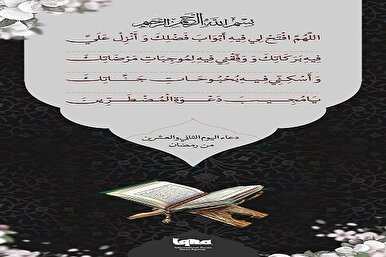 بسم الله الرحمن الرحیم
اللّهُمَّ افْتَحْ لِي فِيهِ أَبْوَابَ فَضْلِكَ وَ أَنْزِلْ عَلَيَّ
فِيهِ بَرَكَاتِكَ وَ وَفِّقْنِي فِيهِ لِمُوجِبَاتِ مَرْضَاتِكَ
وَ أَسْكِنِّي فِيهِ بُحْبُوحَاتِ جَنَّاتِكَ
يَا مُجِيبَ دَعْوَةِ الْمُضْطَرِّينَ
دعاء اليوم الثاني والعشرين
من رمضان